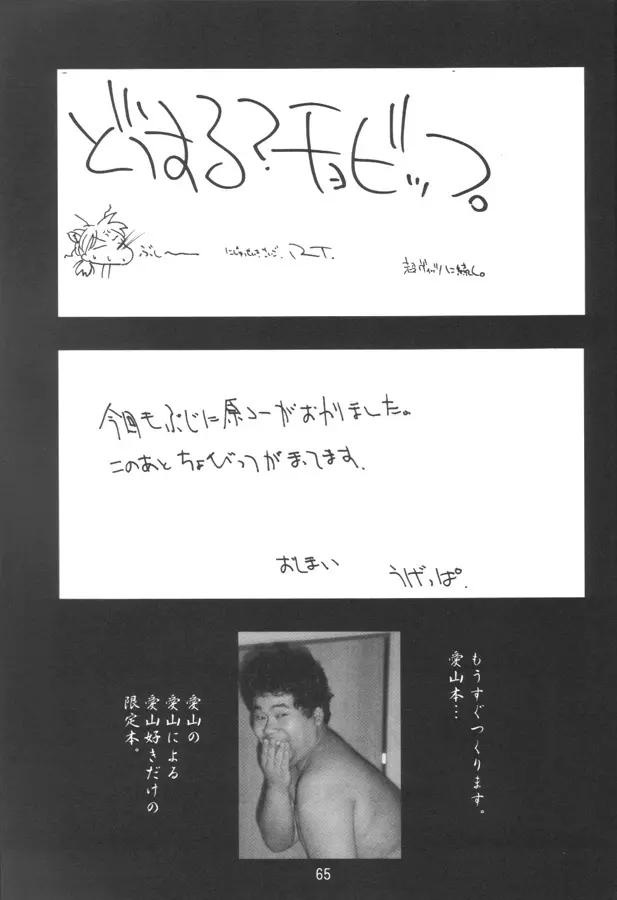 どうする?チョビッツ。
ぷし〜
今回もぶじに原コーがおわりました。
このあとちょびっつがまってます
おしまい
うげっぱ.
もうすぐつくります。
愛山本…
愛山の
愛山による
愛山好きだけの
限定本。
65